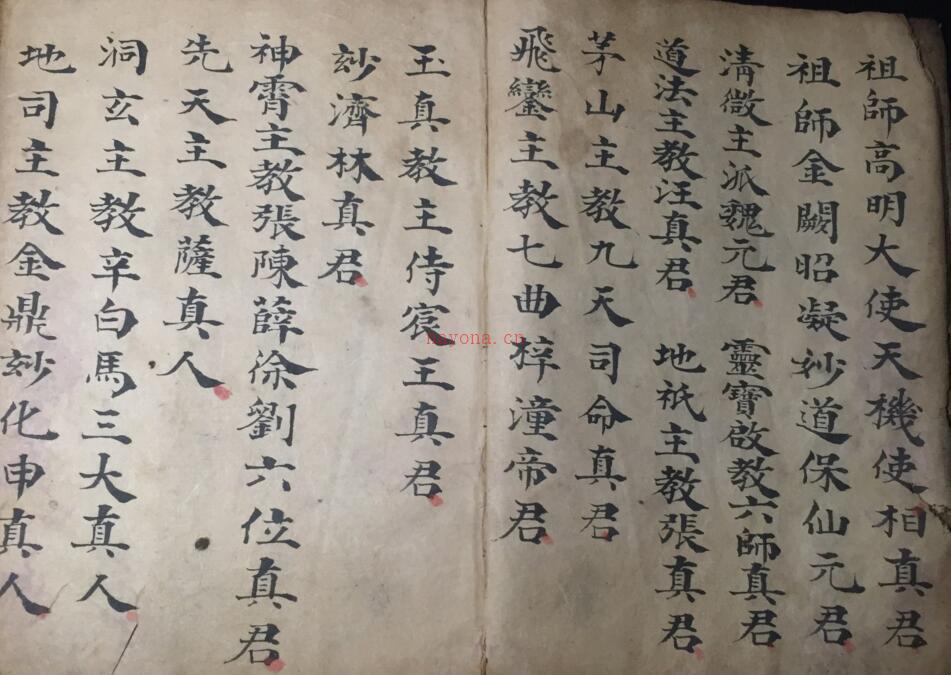 祖師高明大使天機使相真君
祖師金闕昭凝妙道保仙元君
清微主派魏元君 靈寶啟教六師真君
道法主教汪真君 地祇主教張真君
茅山主教九天司命真君
飛鸞主教七曲梓潼帝君
玉真教主侍宸王真君
玅濟林真君
神霄主教張陳薛徐劉六位真君
先天主教薩真人
洞玄主教辛白馬三大真人
地司主教金鼎玅化申真人
nayona.cn